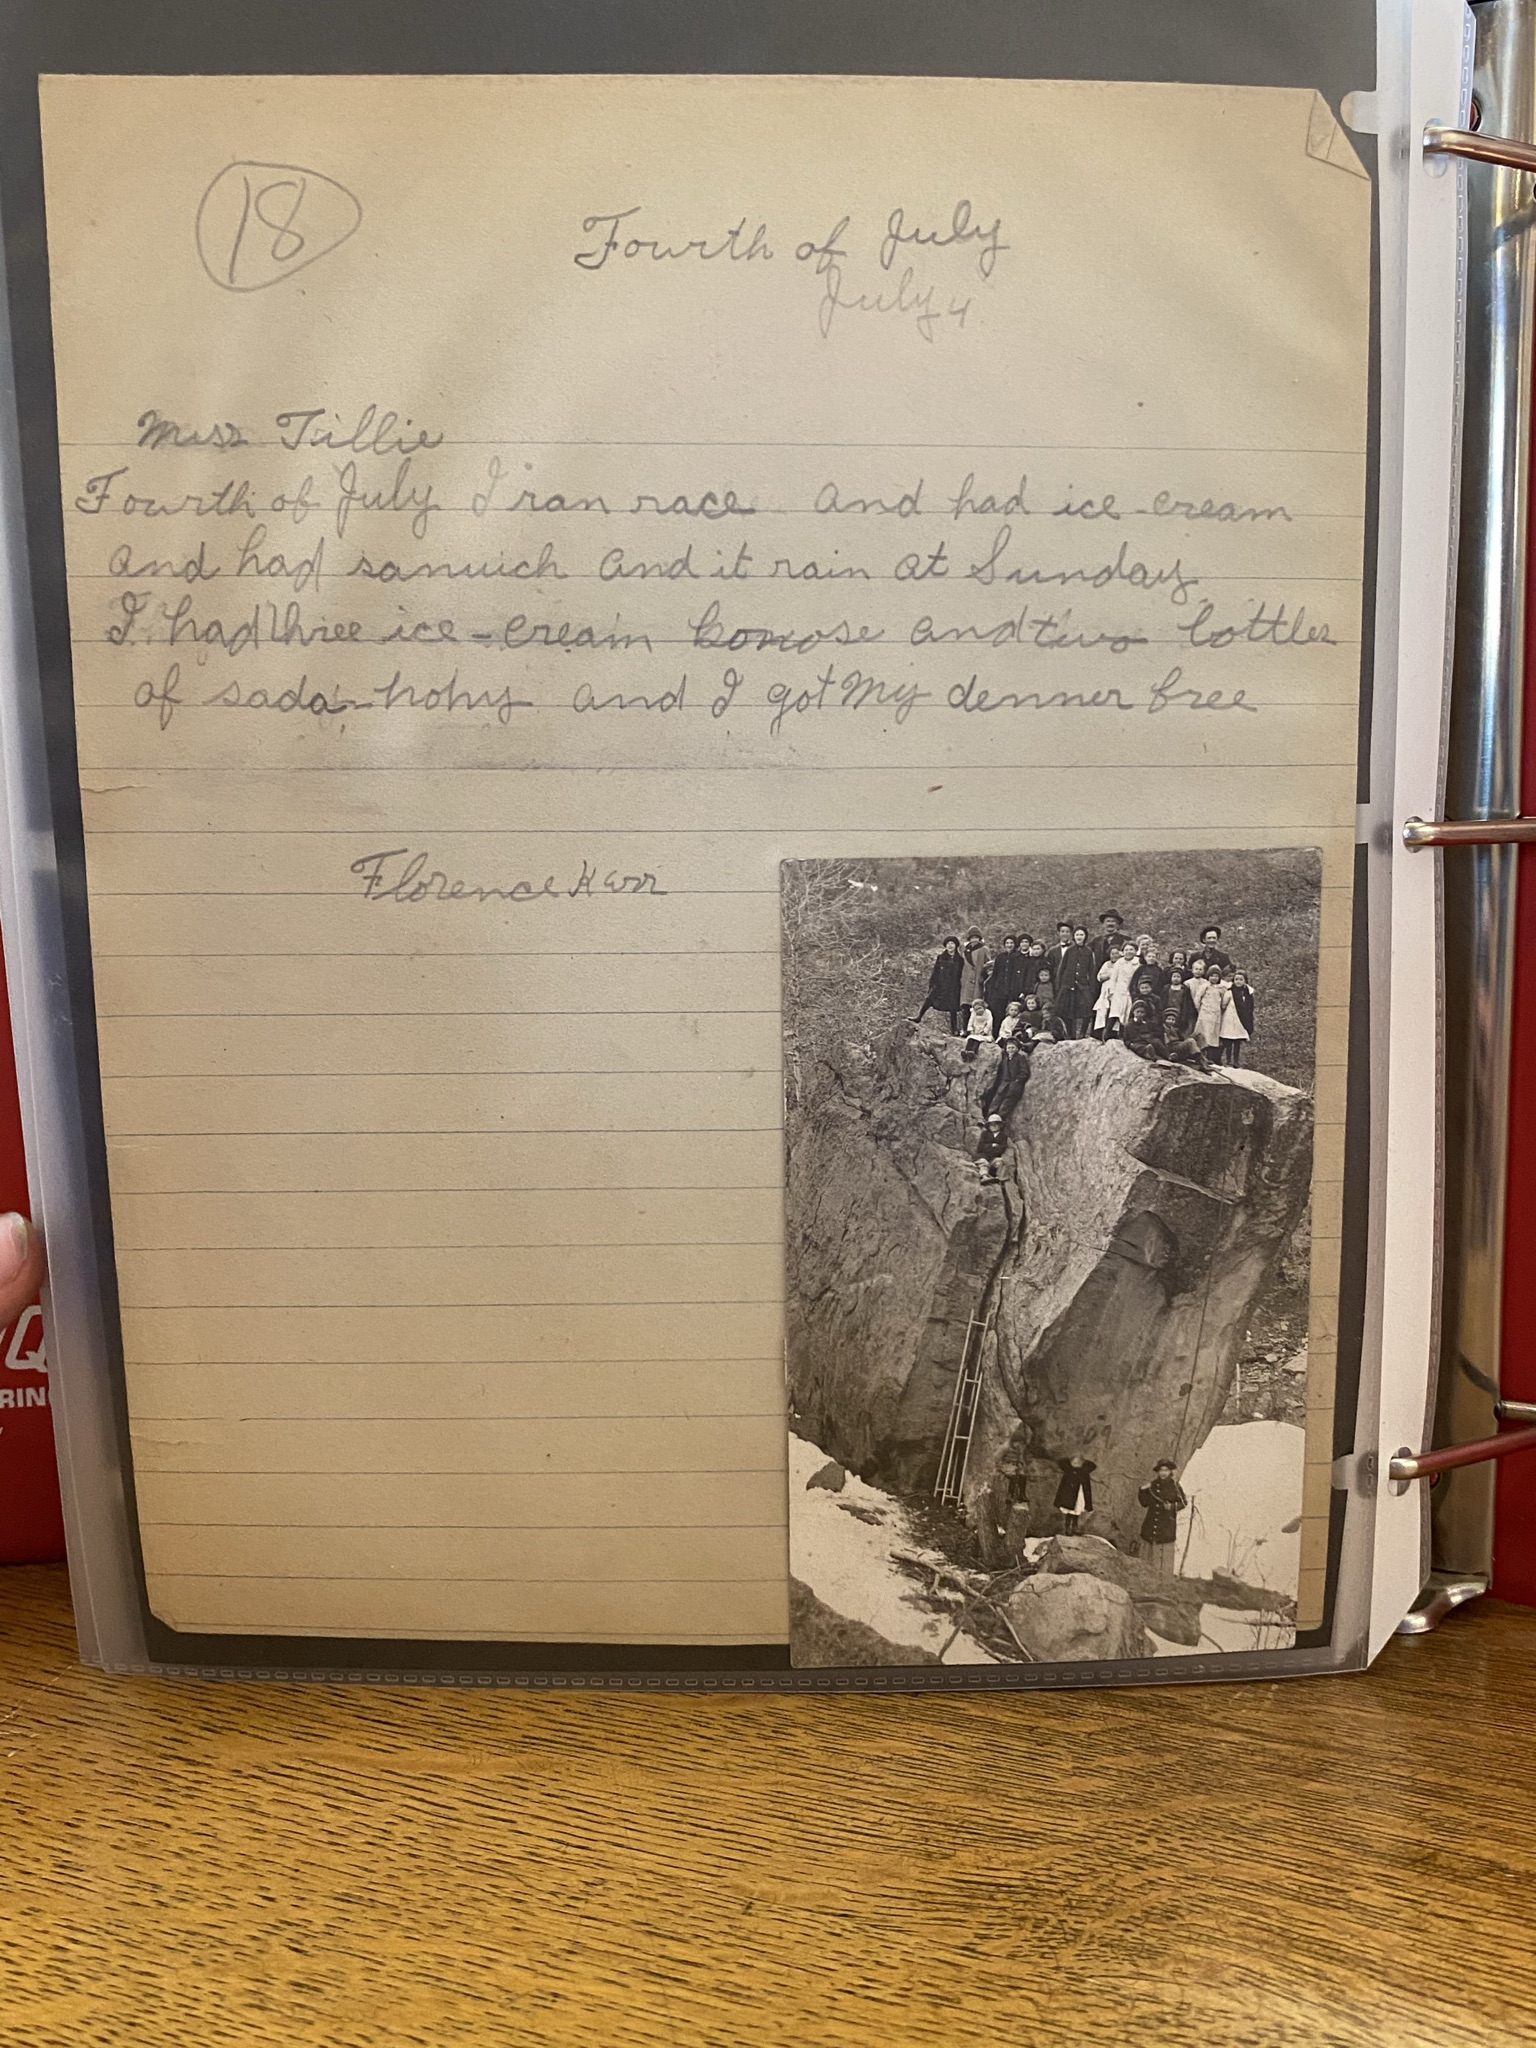 18
Fourth of July
July 4
Miss Tillie
Fourth of July I ran race and had ice-cream
and had sanuich and it rain at Sunday
I had three ice-cream and two bottles
of sada- and I got My denner free
Florence Kerr
Q
RIN